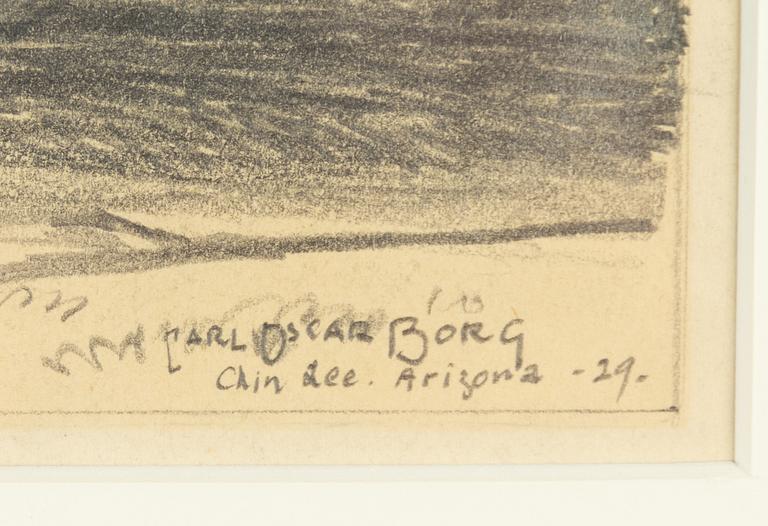 CARL OSCAR BORG
Chin Lee. Arizona -29-